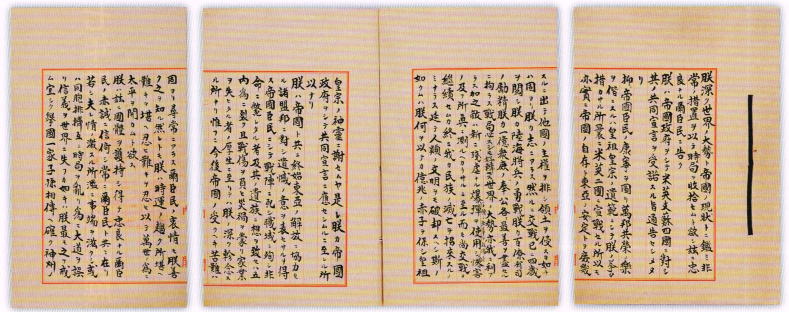 朕深ク世界ノ大勢ト帝國ノ現状トニ鑑ミ非
常ノ措置ヲ以テ時局ヲ収拾セムト欲シ茲ニ忠
良ナル爾臣民ニ告ク
朕ハ帝國政府ヲシテ米英支蘇四國ニ對シ
其ノ共同宣言ヲ受諾スル旨通告セシメタ
リ
抑〻帝國臣民ノ康寧ヲ圖リ萬邦共榮ノ樂
ヲ偕ニスルハ皇祖皇宗ノ遺範ニシテ朕ノ拳々
措カサル所曩ニ米英二國ニ宣戰セル所以モ
亦實ニ帝國ノ自存ト東亞ノ安定トヲ庶幾
スルニ出テ他國ノ主權ヲ排シ領土ヲ侵スカ如
キハ固ヨリ朕カ志ニアラス然ルニ交戰已ニ四歳
ヲ閲シ朕カ陸海將兵ノ勇戰朕カ百僚有司
ノ勵精朕カ一億衆庶ノ奉公各〻最善ヲ盡セ
ルニ拘ラス戰局必スシモ好轉セス世界ノ大勢亦我ニ利
アラス加之敵ハ新ニ殘虐ナル爆彈ヲ使用シ慘害
ノ及フ所眞ニ測ルヘカラサルニ至ル而モ尚交戰ヲ
繼續セムカ終ニ我カ民族ノ滅亡ヲ招來スルノ
ミナラス延テ人類ノ文明ヲモ破却スヘシ斯ノ
如クムハ朕何ヲ以テカ億兆ノ赤子ヲ保シ皇祖
皇宗ノ神靈ニ謝セムヤ是レ朕カ帝國
政府ヲシテ共同宣言ニ應セシムルニ至レル所
以ナリ
朕ハ帝國ト共ニ終始東亞ノ解放ニ協力セ
ル諸盟邦ニ對シ遺憾ノ意ヲ表セサルヲ得
ス帝國臣民ニシテ戰陣ニ死シ職域ニ殉シ非
命ニ斃レタル者及其ノ遺族ニ想ヲ致セハ五
内爲ニ裂ク且戰傷ヲ負ヒ災禍ヲ蒙リ家業
ヲ失ヒタル者ノ厚生ニ至リテハ朕ノ深ク軫念ス
ル所ナリ惟フニ今後帝國ノ受クヘキ苦難ハ
固ヨリ尋常ニアラス爾臣民ノ衷情モ朕善
ク之ヲ知ル然レトモ朕ハ時運ノ趨ク所堪ヘ
難キヲ堪ヘ忍ヒ難キヲ忍ヒ以テ萬世ノ爲ニ
太平ヲ開カムト欲ス
朕ハ茲ニ國體ヲ護持シ得テ忠良ナル爾臣
民ノ赤誠ニ信倚シ常ニ爾臣民ト共ニ在リ
若シ夫レ情ノ激スル所濫ニ事端ヲ滋クシ或
ハ同胞排擠互ニ時局ヲ亂リ爲ニ大道ヲ誤
リ信義ヲ世界ニ失フカ如キハ朕最モ之ヲ戒
ム宜シク擧國一家子孫相傳ヘ確ク神州ノ